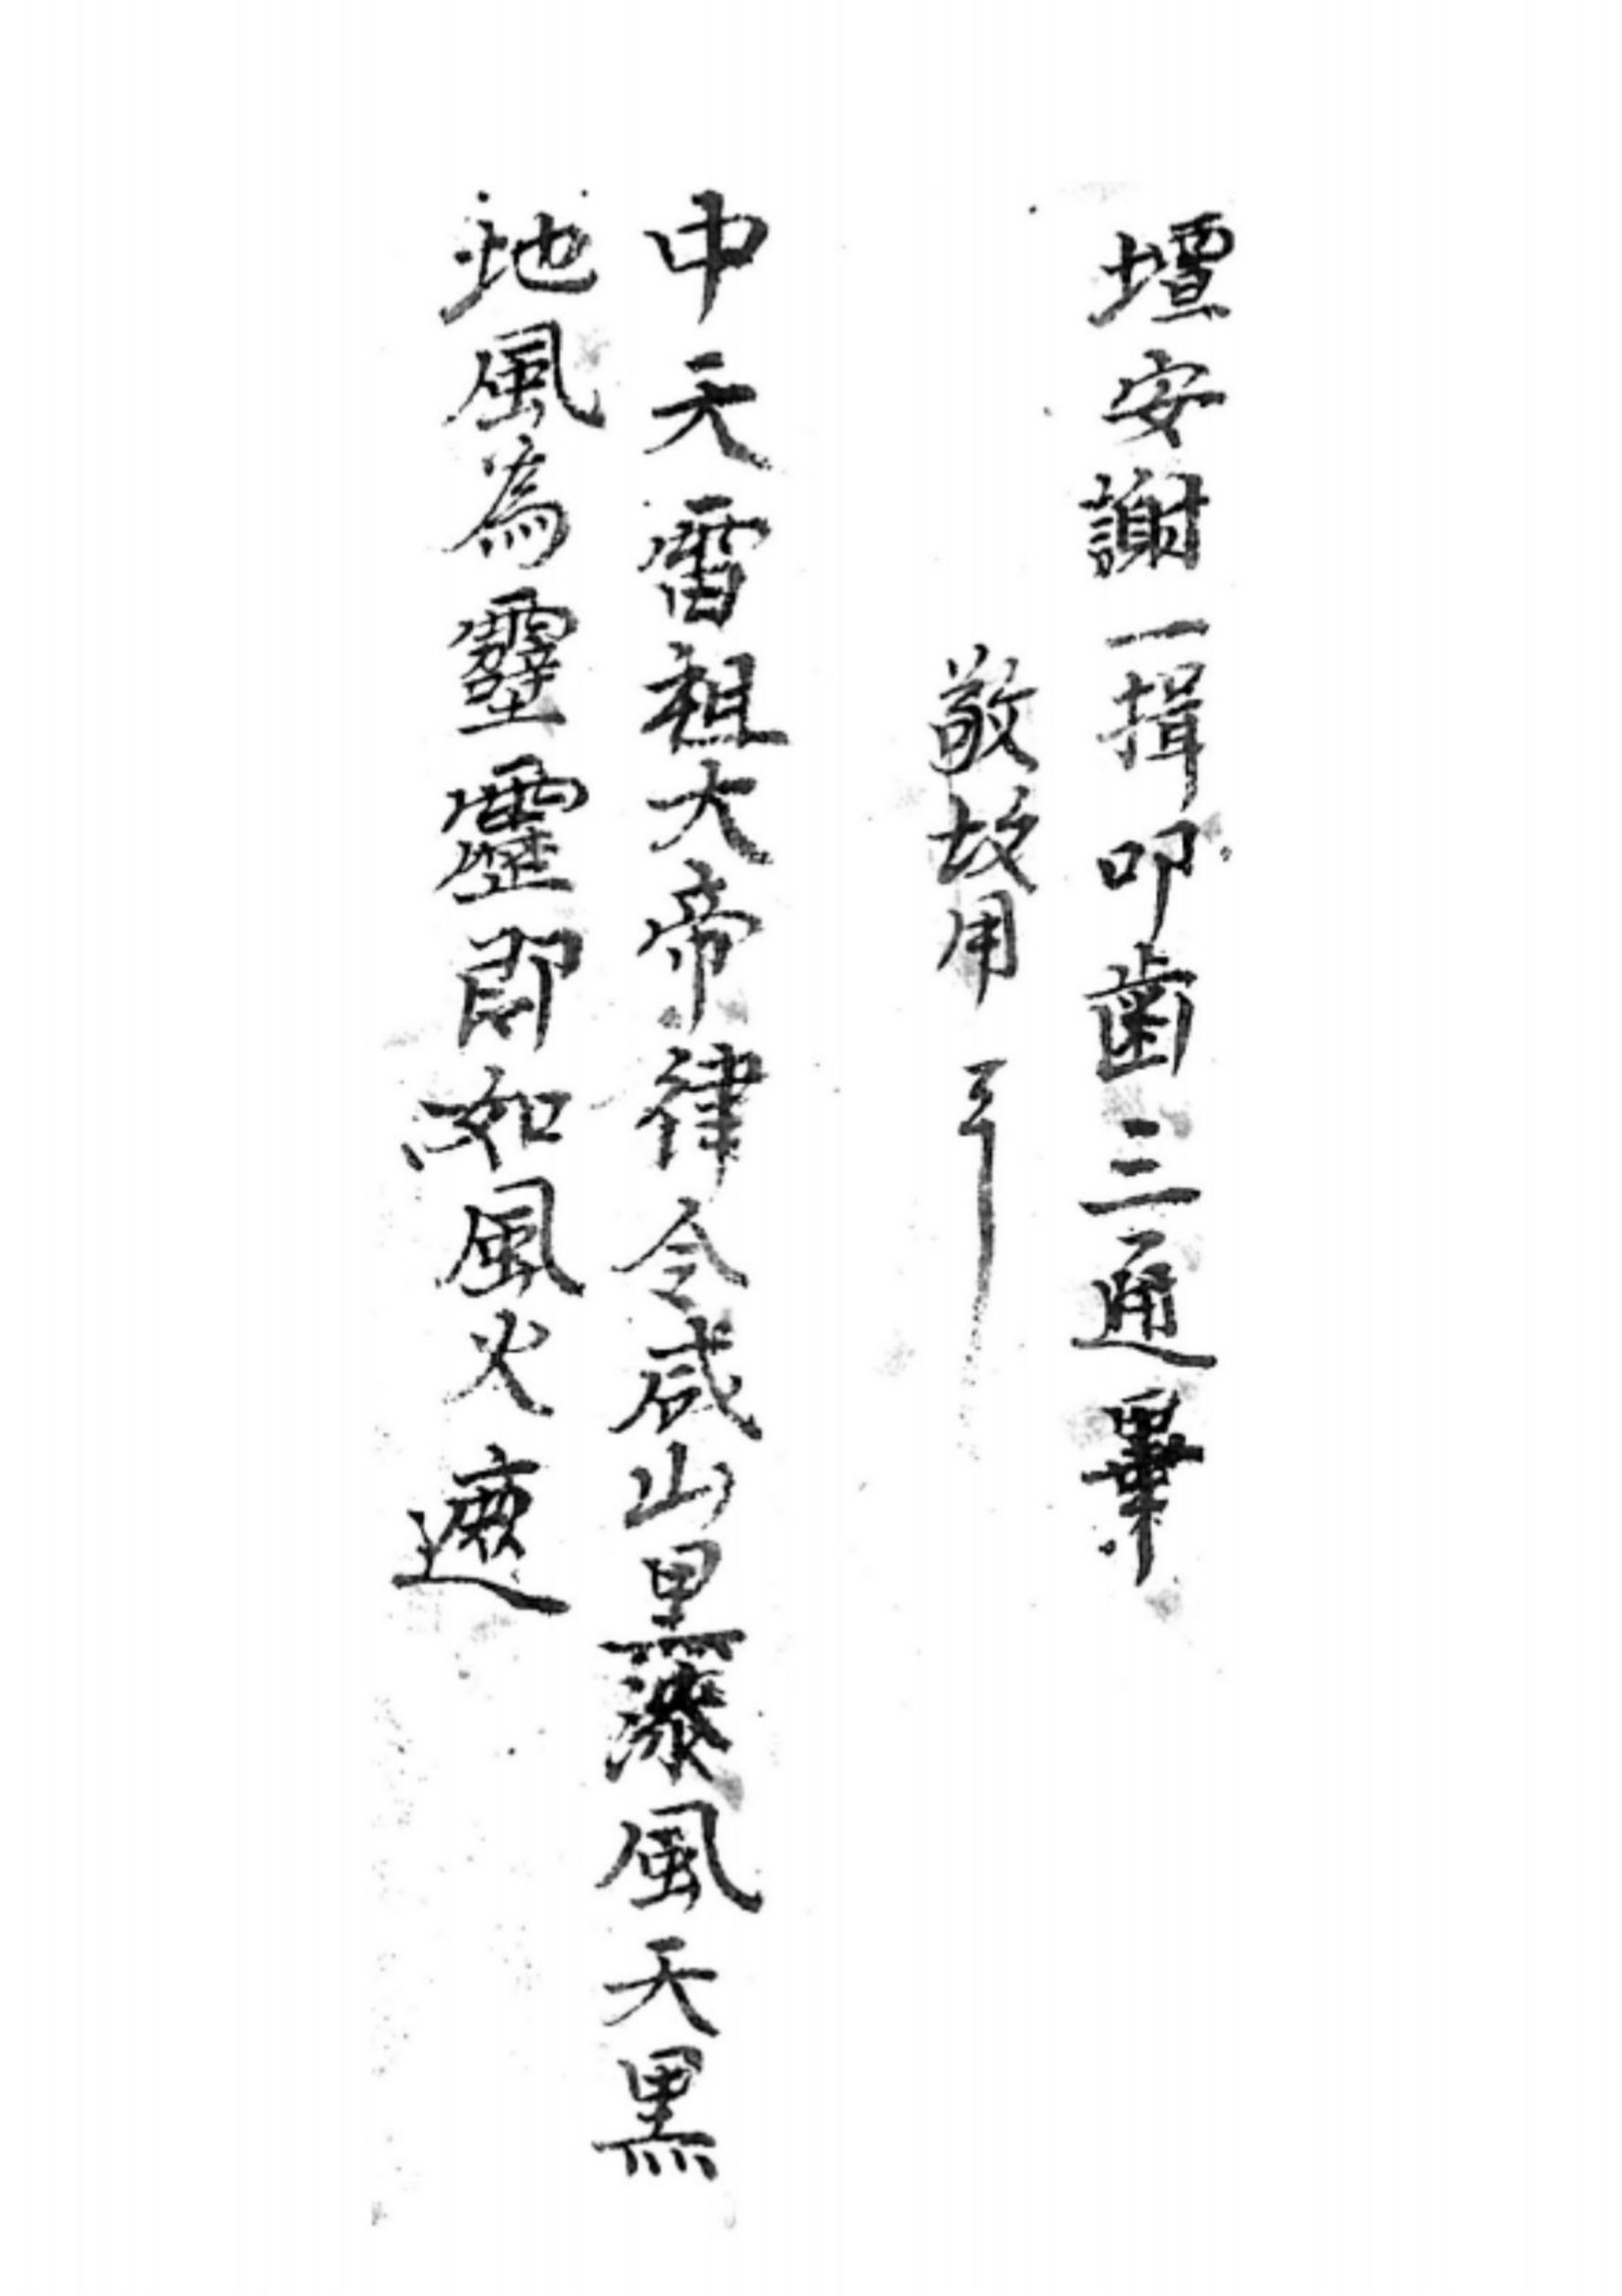 壇安謝一揖叩齒三通畢
敬故用
中天雷祖大帝律令咸山黑漆風天黑
地風為靈即如風火